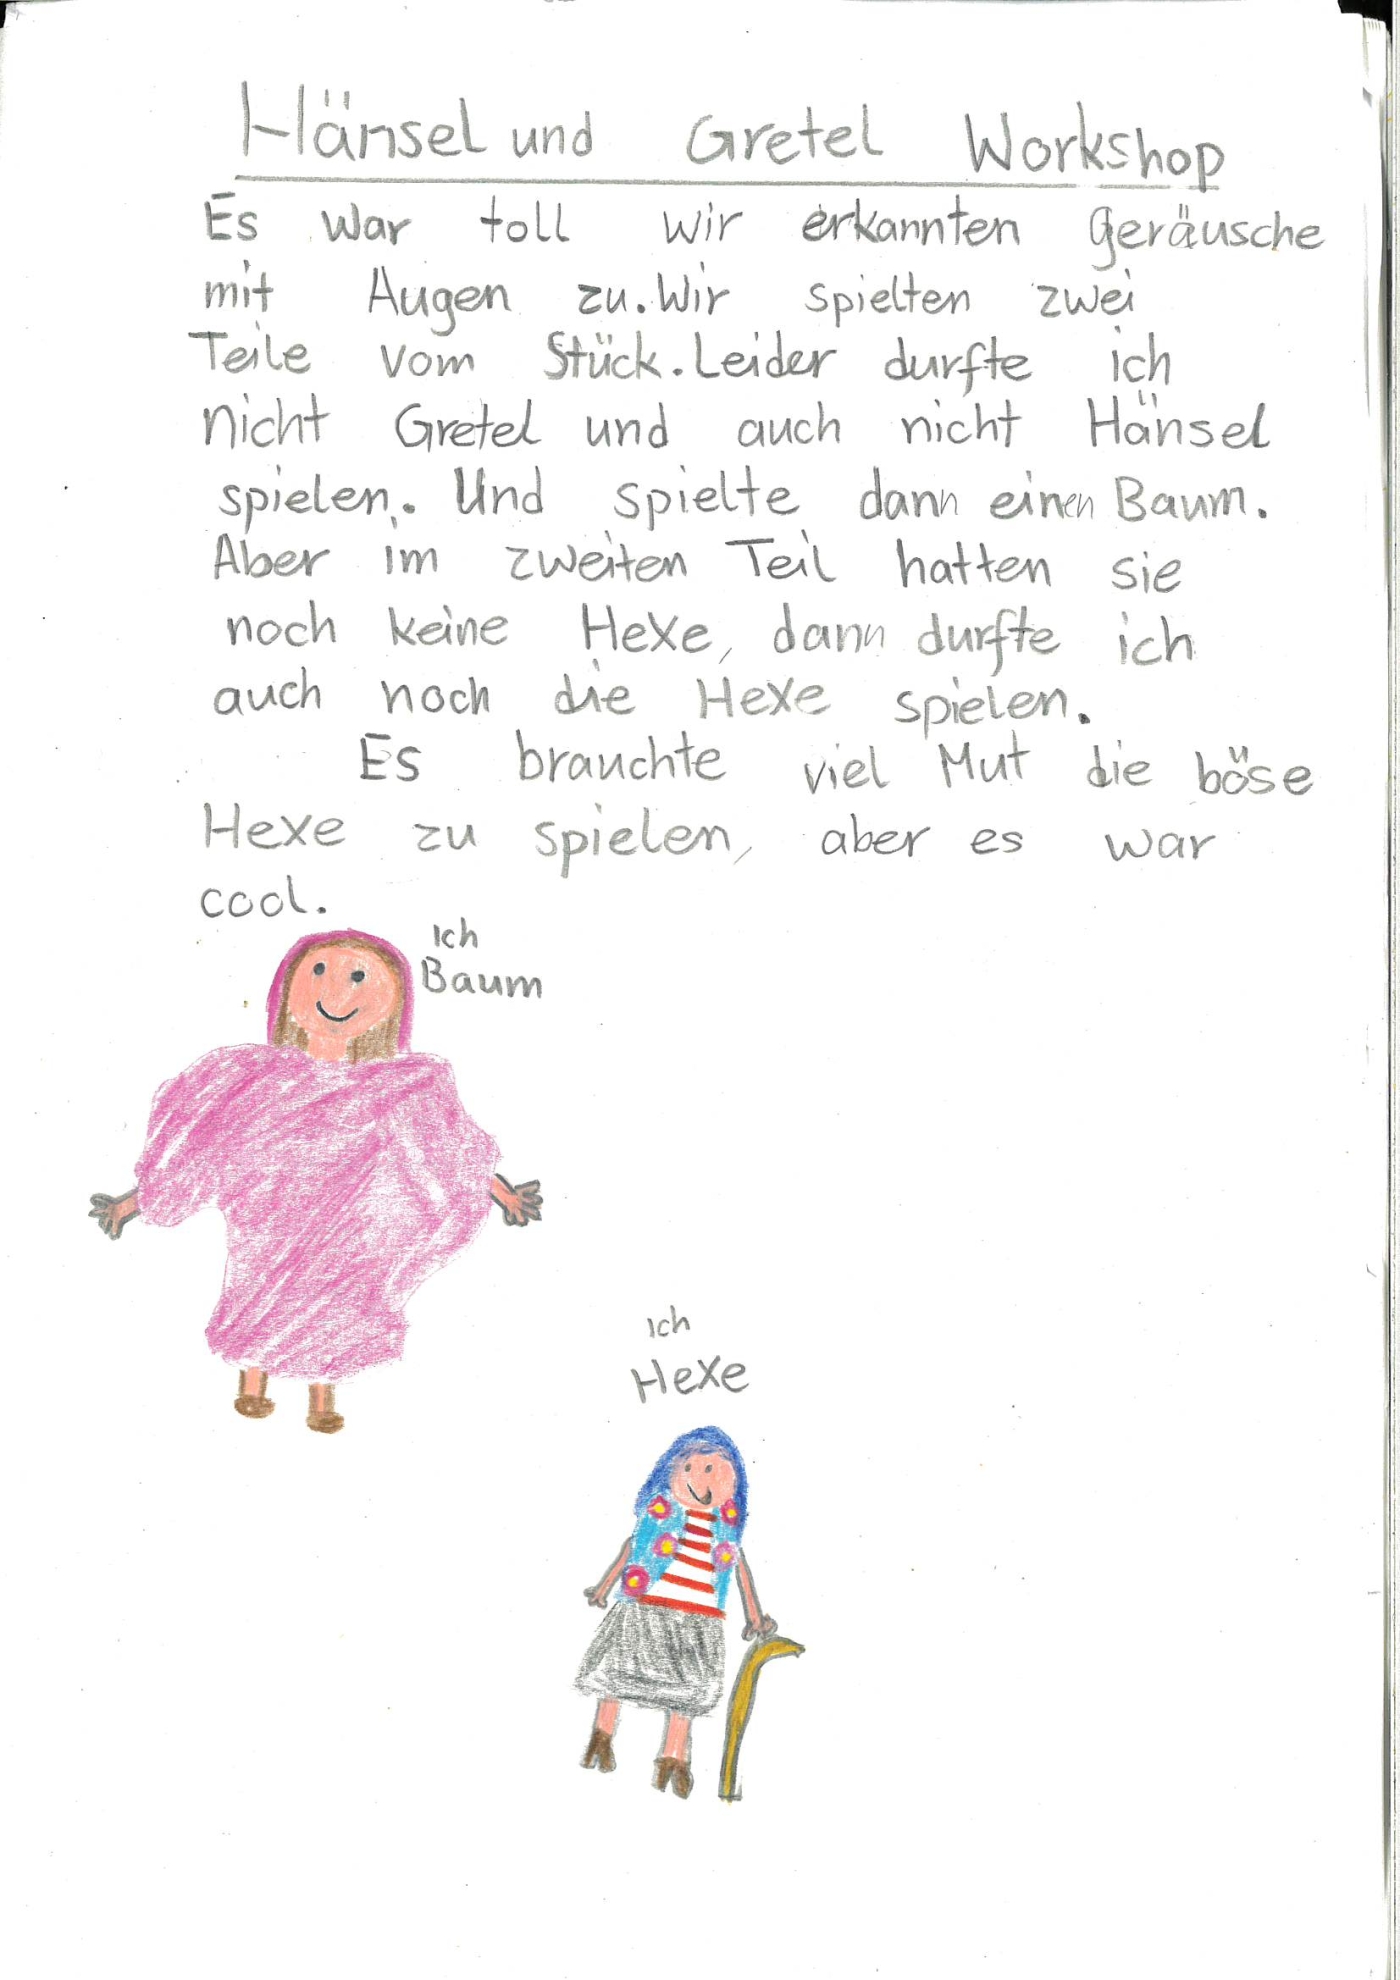 Hänsel und Gretel Workshop
Es war toll wir erkannten Geräusche
mit Augen zu. Wir spielten zwei
Teile vom Stück. Leider durfte ich
nicht Gretel und auch nicht Hänsel
spielen. Und spielte dann einen Baum.
Aber im zweiten Teil hatten sie
noch keine Hexe, dann durfte ich
auch noch die Hexe spielen.
Es brauchte viel Mut die böse
Hexe zu spielen, aber es war
cool.
Ich
Baum
Ich
Hexe